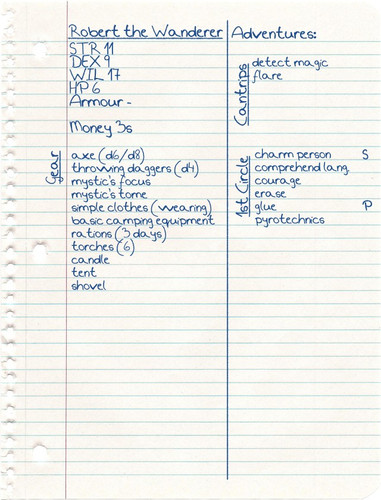 Robert the Wanderer
STR 11
DEX 9
WIL 17
HP 6
Armour -
Money 3s
Gear
axe (d6/d8)
throwing daggers (d4)
mystic's focus
mystic's tome
simple clothes (wearing)
basic camping equipment
rations (3 days)
torches (6)
candle
tent
shovel
Adventures:
Cantrips
detect magic
flare
1st Circle
charm person S
comprehend lang.
courage
erase
glue P
pyrotechnics